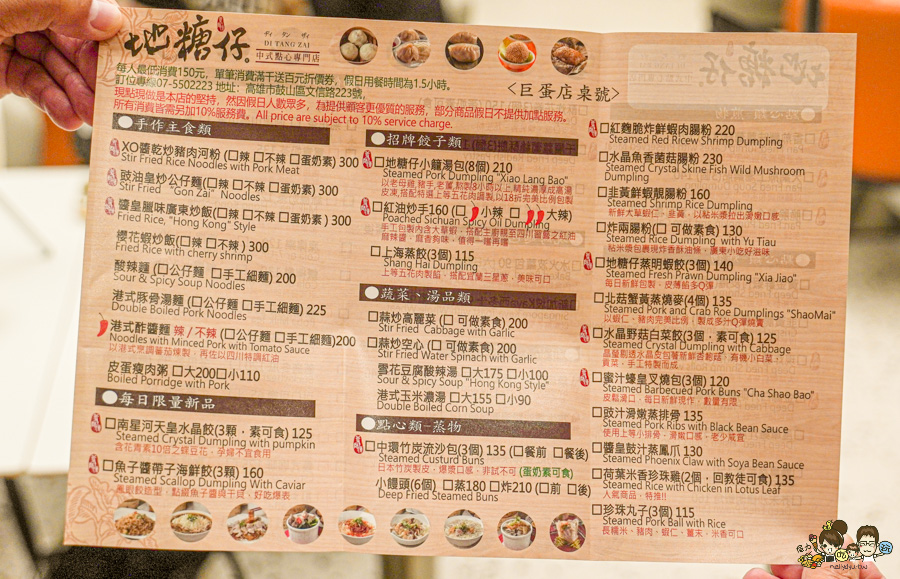 地糖仔
ディ タン ザイ
DI TANG ZAI
中式點心專門店
每人最低消費150元，單筆消費滿千送百元折價券，假日用餐時間為1.5小時。
訂位專線07-5502223 地址：高雄市鼓山區文信路223號，
現點現做是本店的堅持，然因假日人數眾多，為提供顧客更優質的服務，部分商品假日不提供加點服務。
所有消費皆需另加10%服務費。All price are subject to 10% service charge.
<巨蛋店桌號>
●手作主食類
XO醬乾炒豬肉河粉 (□辣 □不辣 □蛋奶素) 300
Stir Fried Rice Noodles with Pork Meat
豉油皇炒公仔麵(□辣 □不辣 □蛋奶素) 300
Stir Fried "Gon Zai" Noodles
醬皇臘味廣東炒飯(□辣 □不辣 □蛋奶素) 300
Fried Rice, "Hong Kong" Style
櫻花蝦炒飯(□辣 □不辣) 300
Fried Rice with cherry shrimp
酸辣麵 (□公仔麵 □手工細麵) 200
Sour & Spicy Soup Noodles
港式豚骨湯麵 (□公仔麵 □手工細麵) 225
Double Boiled Pork Noodles
港式酢醬麵 辣/不辣 (□公仔麵 □手工細麵)200
Noodles with Minced Pork with Tomato Sauce
以港式烹調蕃茄燥製，再佐以四川特調紅油
皮蛋瘦肉粥 □大200□小110
Boiled Porridge with Pork
●每日限量新品
□南星河天皇水晶餃(3顆，素可食) 125
Steamed Crystal Dumpling with pumpkin
含花青素10倍之蝶豆花，孕婦不宜食用
□魚子醬帶子海鮮餃(3顆) 160
Steamed Scallop Dumpling With Caviar
鳳眼餃造型，點綴魚子醬與干貝，好吃爆表
●招牌餃子類
□地糖仔小籠湯包(8個) 210
Steamed Pork Dumpling "Xiao Lang Bao"
以老母雞,豬手,老薑,熬製8小時以上,精粹濃厚成高湯
皮凍,搭配特選上等五花肉調製,以18折完美比例包製
□紅油炒手160 (□小辣 □大辣)
Poached Sichuan Spicy Oil Dumpling
手工包製內含大草蝦，搭配主廚親至四川習藝之紅油
麻辣醬，麻香夠味，值得一嚐再嚐
□上海蒸餃(3個) 115
Shang Hai Dumpling
上等五花肉製餡，搭配宜蘭三星蔥，美味可口
●蔬菜、湯品類
□蒜炒高麗菜 (□ 可做素食) 200
Stir Fried Cabbage with Garlic
□蒜炒空心 (□ 可做素食) 200
Stir Fried Water Spinach with Garlic
雪花豆腐酸辣湯 □大175 □小100
Sour & Spicy Soup "Hong Kong Style"
港式玉米濃湯 □大155 □小90
Double Boiled Corn Soup
●點心類-蒸物
□中環竹炭流沙包(3個) 135 (□餐前 □餐後)
Steamed Custurd Buns
日本竹炭製皮，爆漿口感，非試不可 (蛋奶素可食)
小饅頭(6個) □蒸180 □炸210 (□前 □後)
Deep Fried Steamed Buns
□紅麴脆炸鮮蝦肉腸粉 220
Steamed Red Ricew Shrimp Dumpling
□水晶魚香菌菇腸粉 230
Steamed Crystal Skine Fish Wild Mushroom
Dumpling
□韭黃鮮蝦腸粉 160
Steamed Shrimp Rice Dumpling
新鮮大草蝦仁，韭黃，以粘米漿拉出滑嫩口感
□炸兩腸粉(□ 可做素食) 130
Steamed Rice Dumpling with Yu Tiau
粘米漿包裹現炸香酥油條，廣東小吃好滋味
□地糖仔蒸明蝦餃(3個) 140
Steamed Fresh Prawn Dumpling "Xia Jiao"
每日新鮮包製，皮薄餡多Q彈
□北菇蟹黃蒸燒麥(4個) 135
Steamed Pork and Crab Roe Dumplings "ShaoMai"
以蝦仁、豬肉完美比例，製成多汁Q彈燒賣
□水晶野菇白菜餃(3個，素可食) 125
Steamed Crystal Dumpling with Cabbage
晶瑩剔透水晶皮包著新鮮香菇菇，有機小白菜，
青菜，手工特製而成
□蜜汁蠔皇叉燒包(3個) 120
Steamed Barbecued Pork Buns "Cha Shao Bao"
皮鬆滑口，每日新鮮現作，數量有限
□豉汁滑嫩蒸排骨 135
Steamed Pork Ribs with Black Bean Sauce
使用上等小排骨，滑嫩口感，老少咸宜
□醬皇豉汁蒸鳳爪 130
Steamed Phoenix Claw with Soya Bean Sauce
□荷葉米香珍珠雞(2個，回教徒可食) 135
Steamed Rice with Chicken in Lotus Leaf
人氣商品，特推!!
□珍珠丸子(3個) 115
Steamed Pork Ball with Rice
長糯米、豬肉、蝦仁、薑末，米香可口